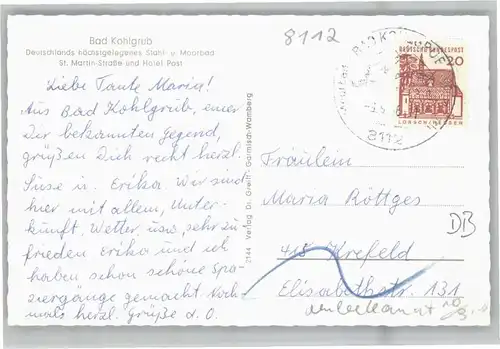 Bad Kohlgrub
Deutschlands höchstgelegenes Stahl- u. Moorbad
St. Martin-Straße und Hotel Post
8112
Liebe Tante Maria!
Aus Bad Kohlgrub, einer
Dir bekannten Gegend,
grüßen Dich recht herzl.
Suse u. Erika Wir sind
hier mit allem, Unter-
kunft, Wetter usw. sehr zu-
frieden Erika und ich
haben schon schöne Spa-
ziergänge gemacht Noch-
mals herzl. Grüße d. O.
2144 Verlag Dr. Greith Garmisch-Wamberg
BAD KOHLGRUB
8112
DEUTSCHE BUNDESPOST
20
LORSCH/HESSEN
Fräulein
Maria Röttges
DB
415 Krefeld
Elisabethstr. 131
unbekannt